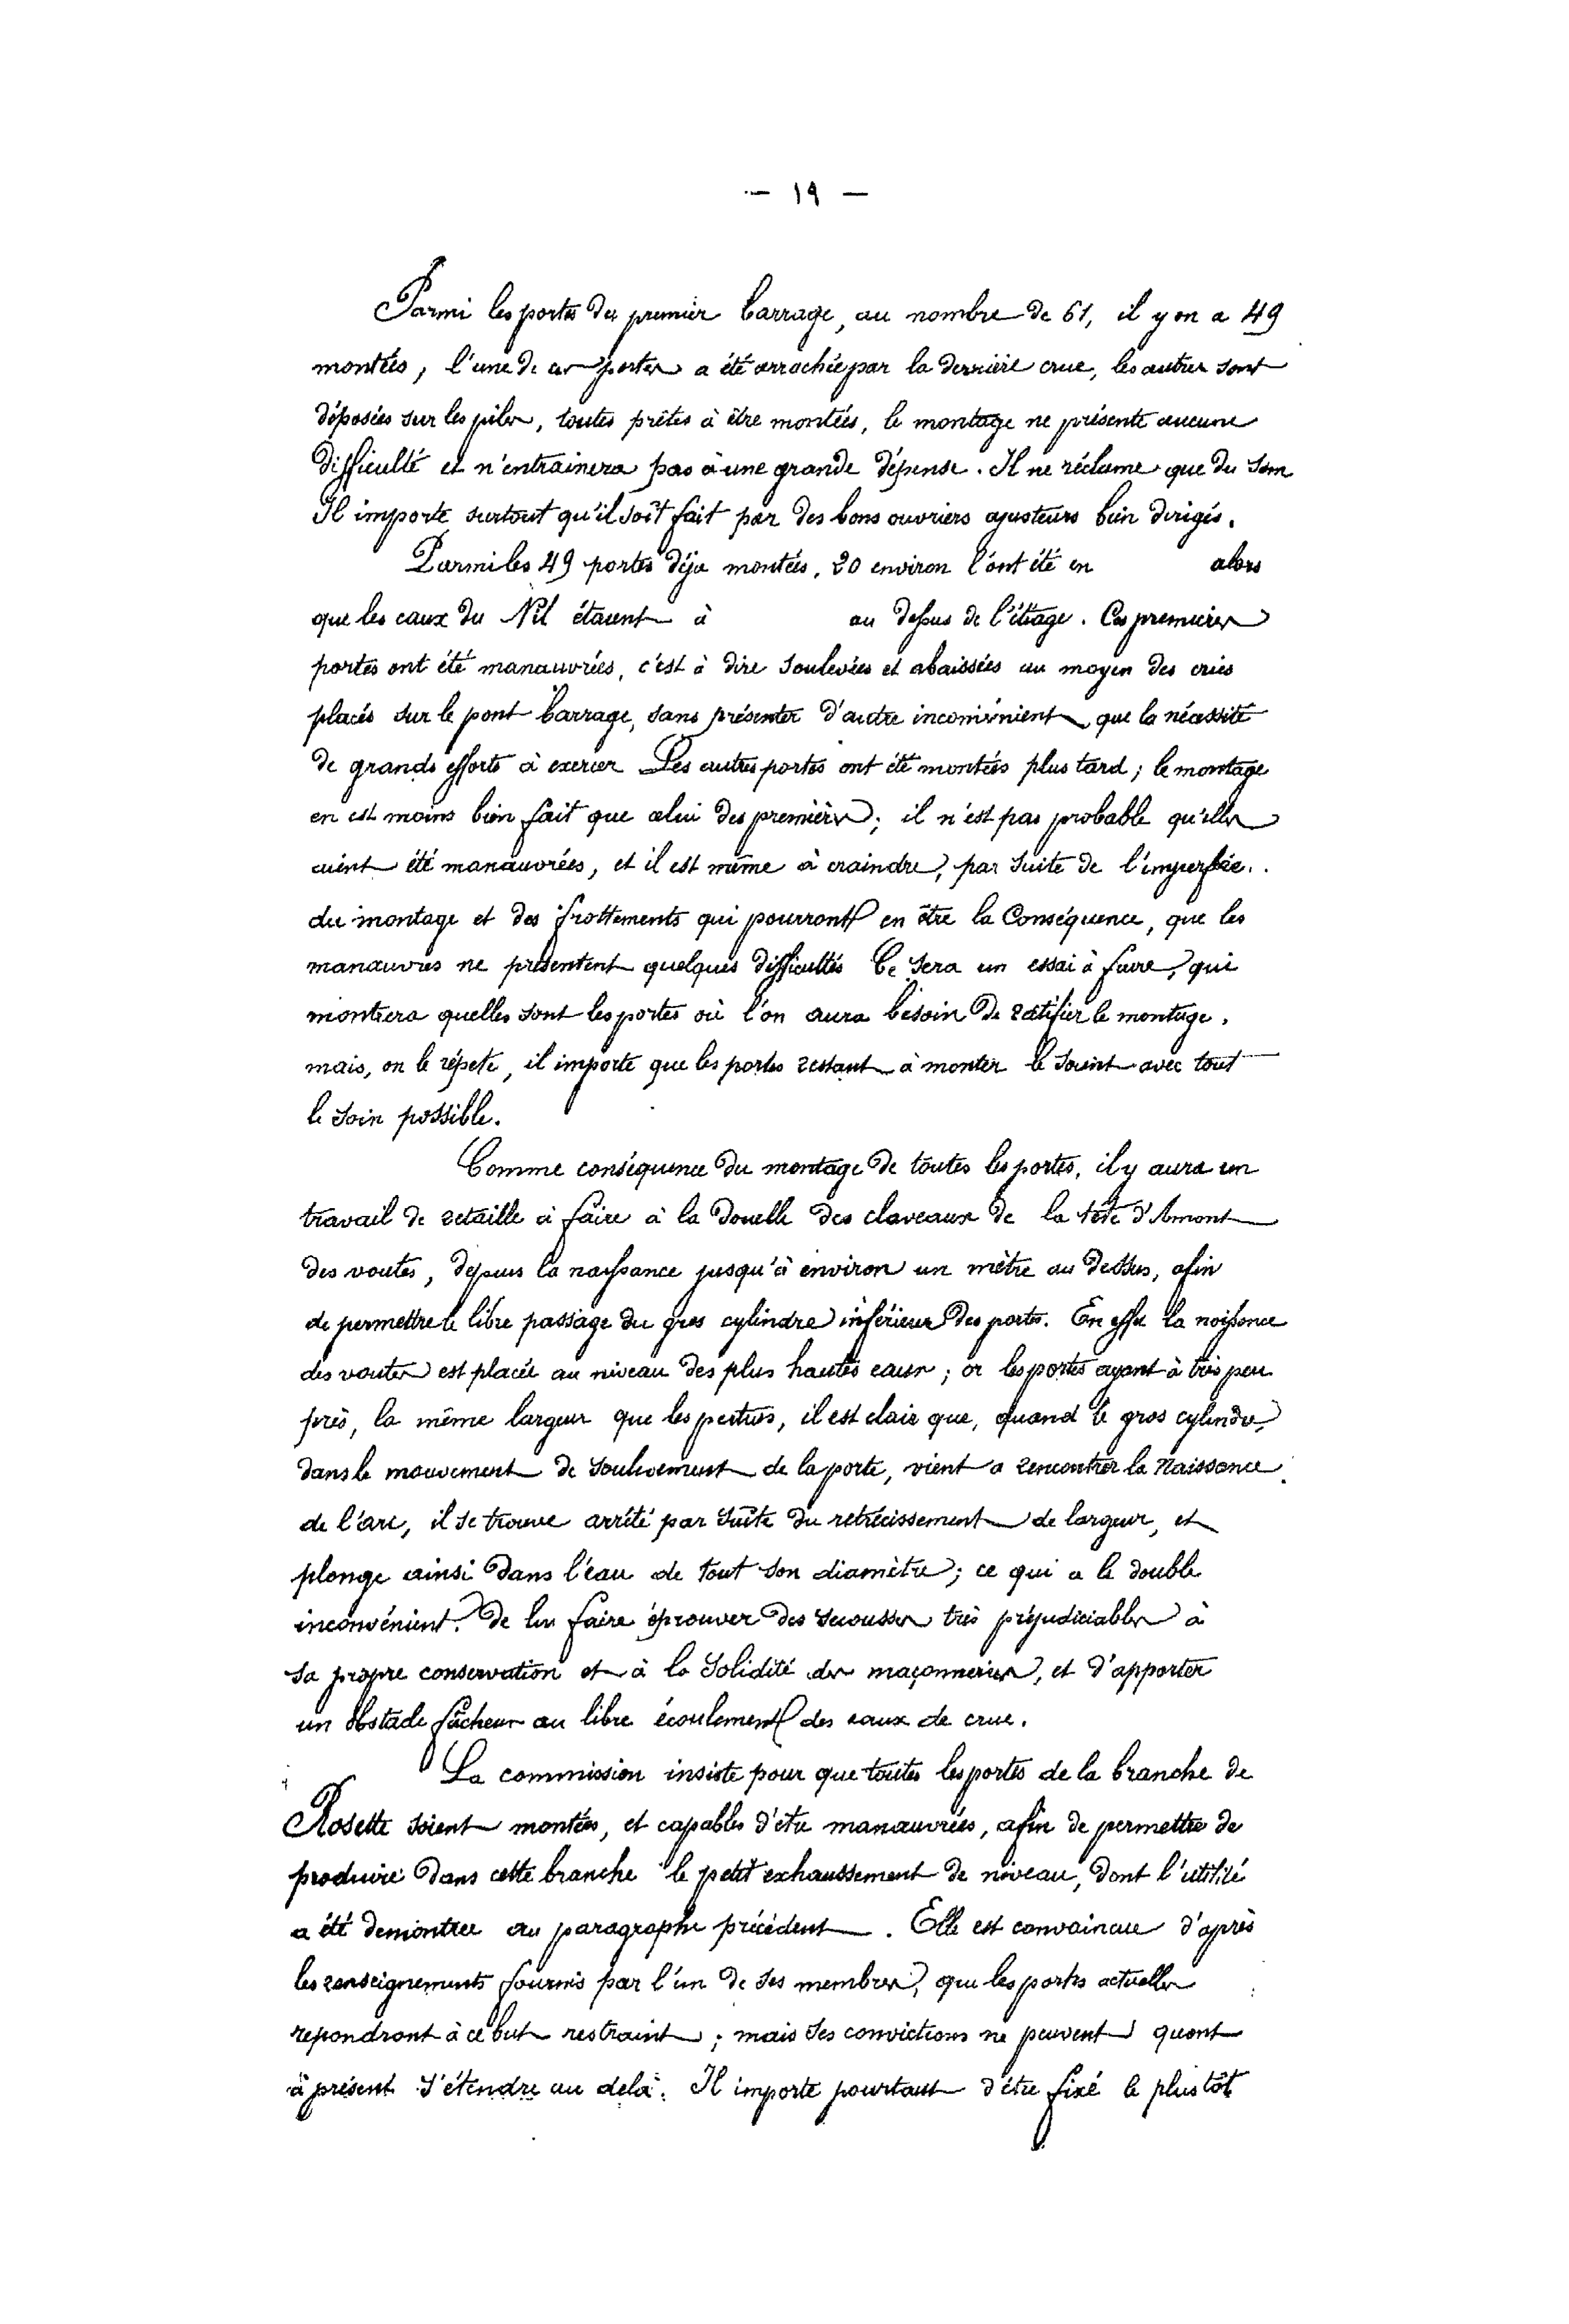 — 19 —
Parmi les portes du premier barrage, au nombre de 61, il y en a 49
montées, l'une de ces portes a été arrachée par la dernière crue, les autres sont
déposées sur les piles, toutes prêtes à être montées, le montage ne présente aucune
difficulté et n'entrainera pas à une grande dépense. Il ne réclame que du soin
Il importe surtout qu'il soit fait par des bons ouvriers ajusteurs bien dirigés.
Parmi les 49 portes déja montées, 20 environ l'ont été en alors
que les eaux du Nil étaient à au dessus de l'étiage. Ces premières
portes ont été manœuvrées, c'est à dire soulevées et abaissées au moyen des crics
placés sur le pont barrage, sans présenter d'autre inconvénient que la nécessité
de grands efforts à exercer Les autres portes ont été montées plus tard; le montage
en est moins bien fait que celui des premières; il n'est pas probable qu'elles
aient été manœuvrées, et il est même à craindre, par suite de l'imperfec..
du montage et des frottements qui pourront en être la Conséquence, que les
manœuvres ne présentent quelques difficultés Ce sera un essai à faire, qui
montrera quelles sont les portes où l'on aura besoin de rectifier le montage.
mais, on le répete, il importe que les portes restant à monter le soient avec tout
le soin possible.
Comme conséquence du montage de toutes les portes, il y aura un
travail de retaille à faire à la douelle des claveaux de la tête d'Amont
des voutes, depuis la naissance jusqu'à environ un mètre au dessus, afin
de permettre le libre passage du gros cylindre inférieur des portes. En effet la naissance
des voutes est placée au niveau des plus hautes eaux; or les portes ayant à très peu
près, la même largeur que les pertuis, il est clair que, quand le gros cylindre,
dans le mouvement de soulèvement de la porte, vient a rencontrer la Naissance
de l'arc, il se trouve arrêté par suite du retrécissement de largeur, et
plonge ainsi dans l'eau de tout son diamètre; ce qui a le double
inconvénient de lui faire éprouver des secousses très préjudiciables à
sa propre conservation et à la solidité des maçonneries, et d'apporter
un obstacle fâcheux au libre écoulement des eaux de crue.
La commission insiste pour que toutes les portes de la branche de
Rosette soient montées, et capables d'être manœuvrées, afin de permettre de
produire dans cette branche le petit exhaussement de niveau, dont l'utilité
a été demontrée au paragraphe précédent. Elle est convaincue d'après
les renseignements fournis par l'un de ses membres, que les portes actuelles
repondront à ce but restraint; mais ses convictions ne peuvent quant
à présent s'étendre au delà. Il importe pourtant d'être fixé le plus tôt